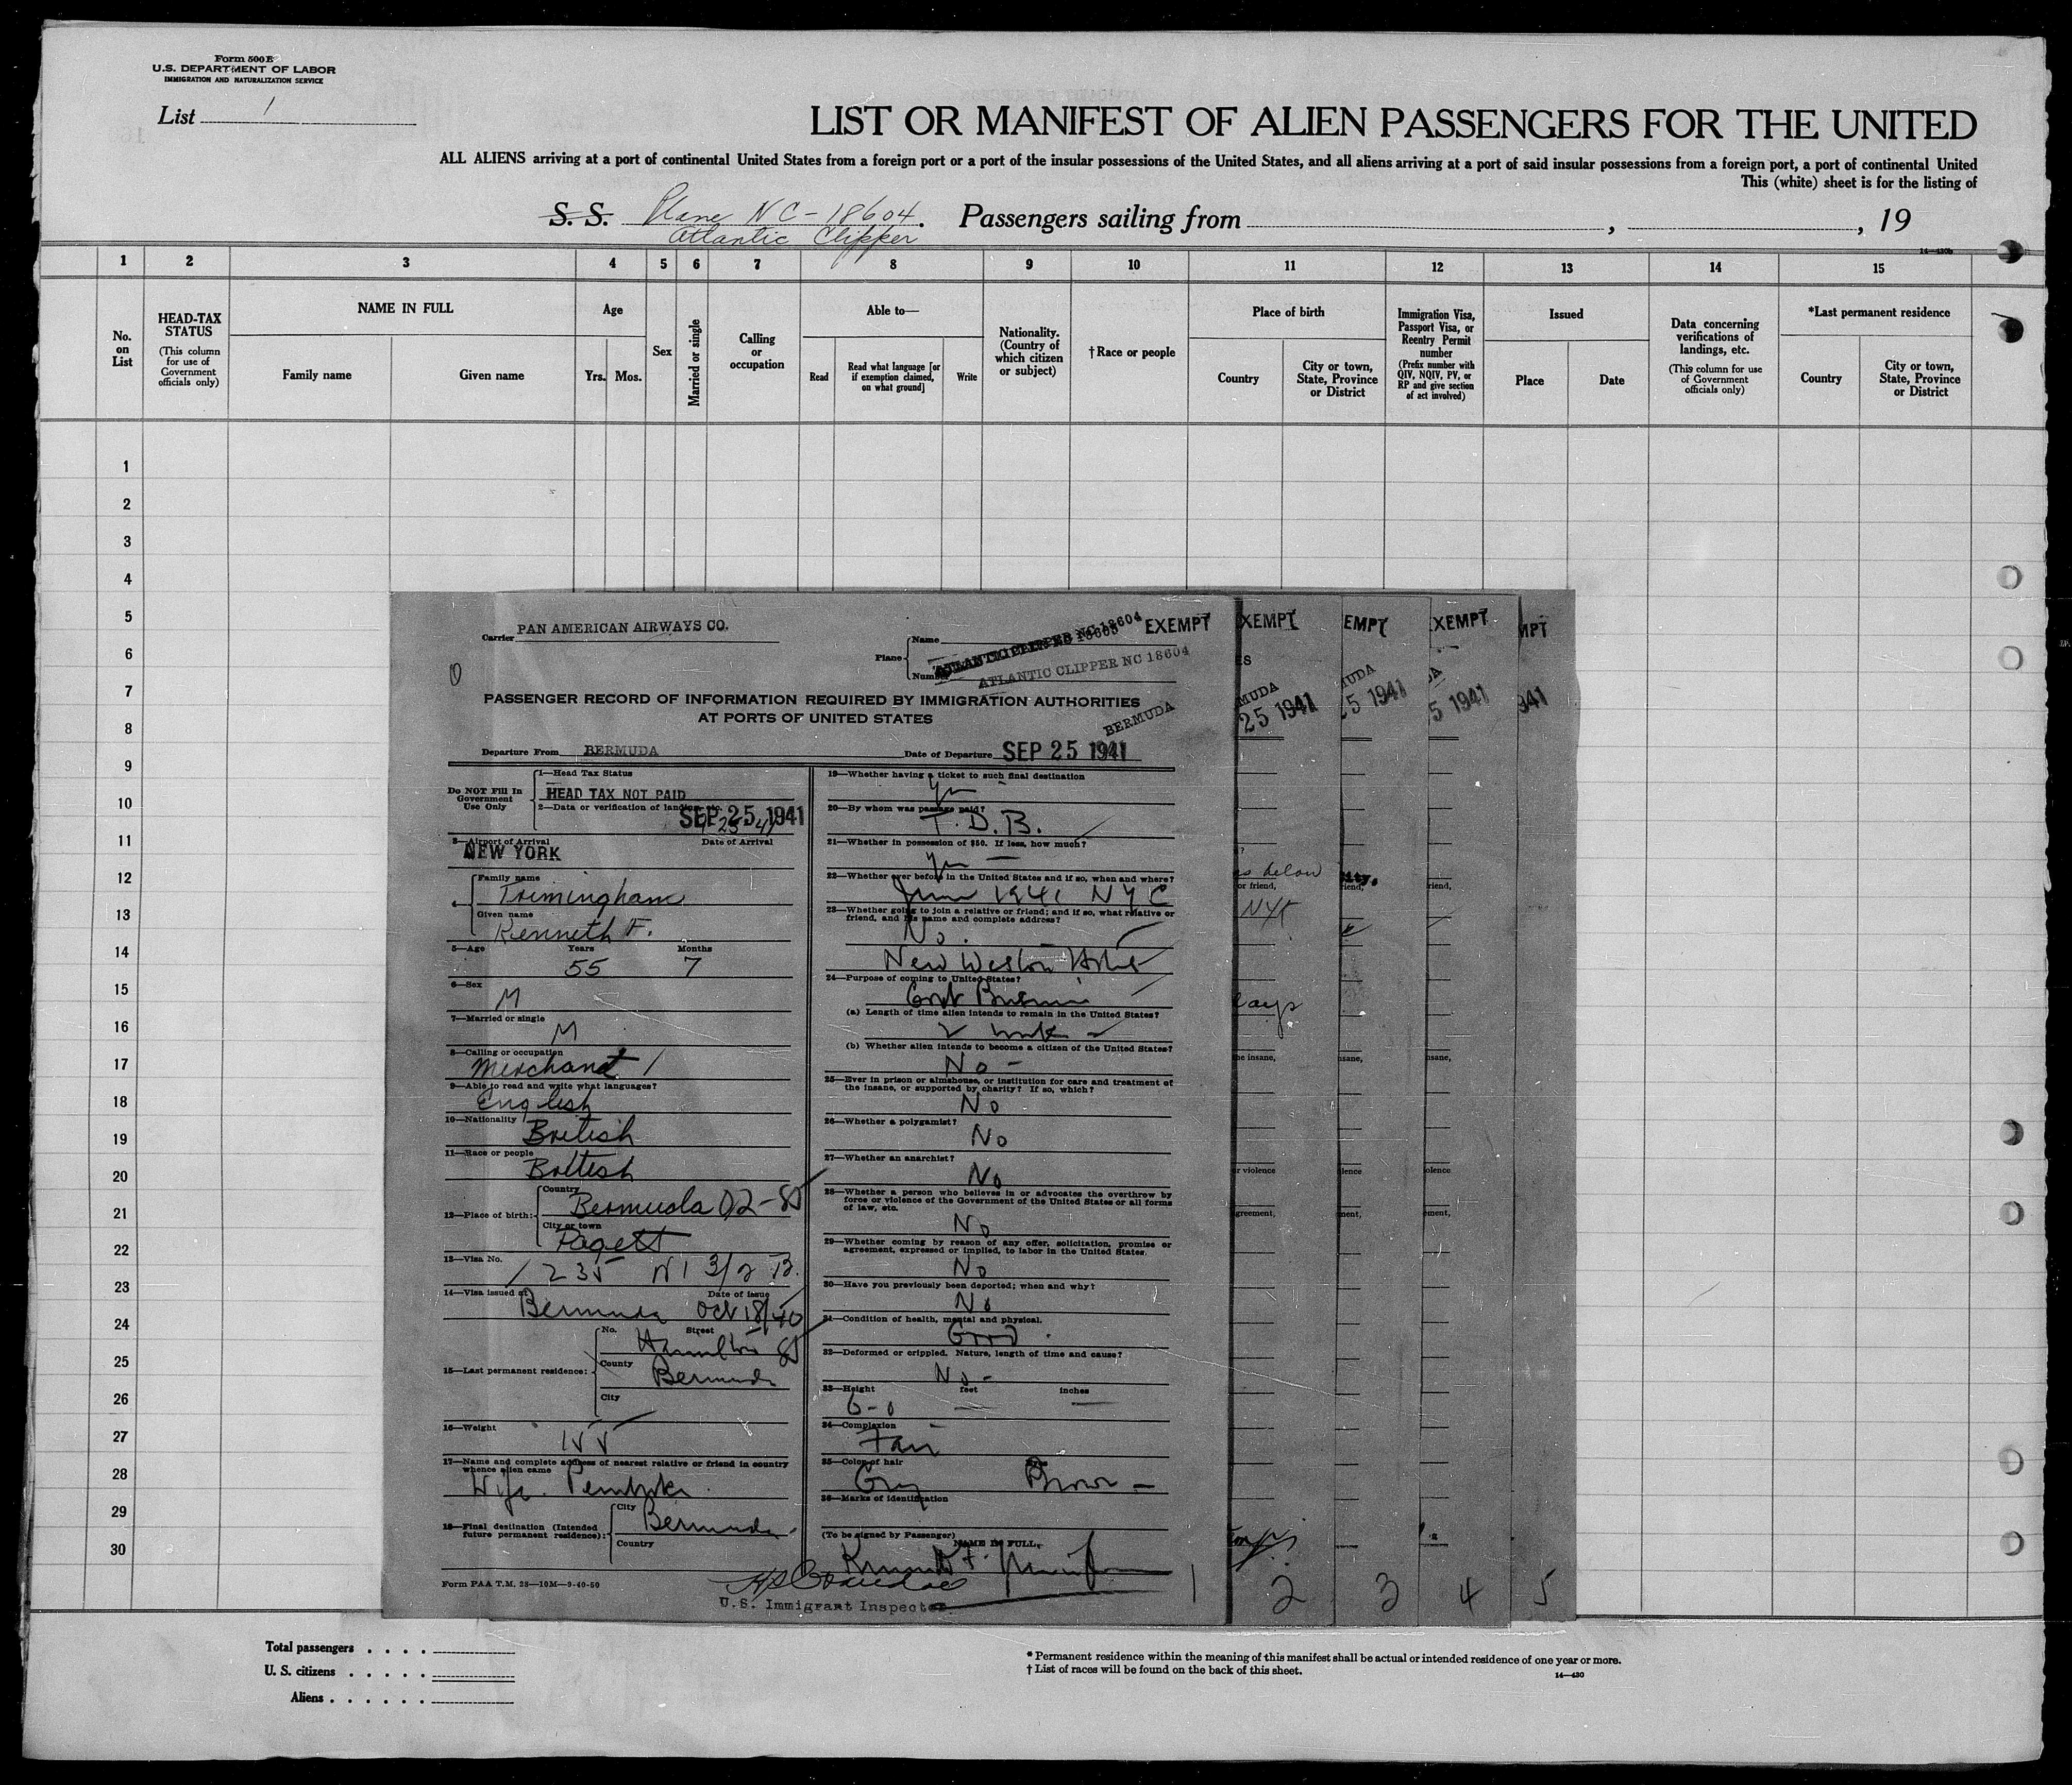 Form 500 E
U.S. DEPARTMENT OF LABOR
IMMIGRATION AND NATURALIZATION SERVICE
List 1
LIST OR MANIFEST OF ALIEN PASSENGERS FOR THE UNITED
ALL ALIENS arriving at a port of continental United States from a foreign port or a port of the insular possessions of the United States, and all aliens arriving at a port of said insular possessions from a foreign port, a port of continental United
This (white) sheet is for the listing of
S. S. Plane NC-18604. Passengers sailing from , , 19
Atlantic Clipper
14-430b
1 2 3 4 5 6 7 8 9 10 11 12 13 14 15
No. on List
HEAD-TAX STATUS
(This column for use of Government officials only)
NAME IN FULL
Family name Given name
Age
Yrs. Mos.
Sex
Married or single
Calling or occupation
Able to—
Read
Read what language [or if exemption claimed, on what ground]
Write
Nationality. (Country of which citizen or subject)
†Race or people
Place of birth
Country
City or town, State, Province or District
Immigration Visa, Passport Visa, or Reentry Permit number
(Prefix number with QIV, NQIV, PV, or RP and give section of act involved)
Issued
Place Date
Data concerning verifications of landings, etc.
(This column for use of Government officials only)
*Last permanent residence
Country
City or town, State, Province or District
1
2
3
4
5
6
7
8
9
10
11
12
13
14
15
16
17
18
19
20
21
22
23
24
25
26
27
28
29
30
Carrier PAN AMERICAN AIRWAYS CO.
Plane
Name
Number
ATLANTIC CLIPPER NC 18604
EXEMPT
PASSENGER RECORD OF INFORMATION REQUIRED BY IMMIGRATION AUTHORITIES
AT PORTS OF UNITED STATES
BERMUDA
Departure From BERMUDA
Date of Departure SEP 25 1941
Do NOT Fill In
Government
Use Only
1—Head Tax Status
HEAD TAX NOT PAID
2—Data or verification of landing, etc.
SEP 25 1941
3—Airport of Arrival Date of Arrival
NEW YORK
4
Family name
Trimingham
Given name
Kenneth F.
5—Age Years Months
55 7
6—Sex
M
7—Married or single
M
8—Calling or occupation
Merchant
9—Able to read and write what languages?
English
10—Nationality
British
11—Race or people
British
12—Place of birth:
Country
Bermuda
City or town
Pagett
13—Visa No.
235 3/2 B.
14—Visa issued at Date of issue
Bermuda Oct 18/40
15—Last permanent residence:
No. Street
Hamilton
County
Bermuda
City
16—Weight
155
17—Name and complete address of nearest relative or friend in country
whence alien came
Wife. Pembroke
18—Final destination (Intended
future permanent residence):
City
Bermuda
Country
Form PAA T.M. 28—10M—9-40-50
19—Whether having a ticket to such final destination
Yes
20—By whom was passage paid?
T.D.B.
21—Whether in possession of $50. If less, how much?
Yes
22—Whether ever before in the United States and if so, when and where?
June 1941 NYC
23—Whether going to join a relative or friend; and if so, what relative or
friend, and his name and complete address?
No.
New Weston Hotel
24—Purpose of coming to United States?
Govt Business
(a) Length of time alien intends to remain in the United States?
2 weeks
(b) Whether alien intends to become a citizen of the United States?
No
25—Ever in prison or almshouse, or institution for care and treatment of
the insane, or supported by charity? If so, which?
No
26—Whether a polygamist?
No
27—Whether an anarchist?
No
28—Whether a person who believes in or advocates the overthrow by
force or violence of the Government of the United States or all forms
of law, etc.
No
29—Whether coming by reason of any offer, solicitation, promise or
agreement, expressed or implied, to labor in the United States.
No
30—Have you previously been deported; when and why?
No
31—Condition of health, mental and physical.
Good
32—Deformed or crippled. Nature, length of time and cause?
No
33—Height feet inches
6-0
34—Complexion
Fair
35—Color of hair
Gray Brown
36—Marks of identification
(To be signed by Passenger)
NAME IN FULL,
U.S. Immigrant Inspector
1 2 3 4 5
Total passengers
U. S. citizens
Aliens
* Permanent residence within the meaning of this manifest shall be actual or intended residence of one year or more.
† List of races will be found on the back of this sheet.
14-430